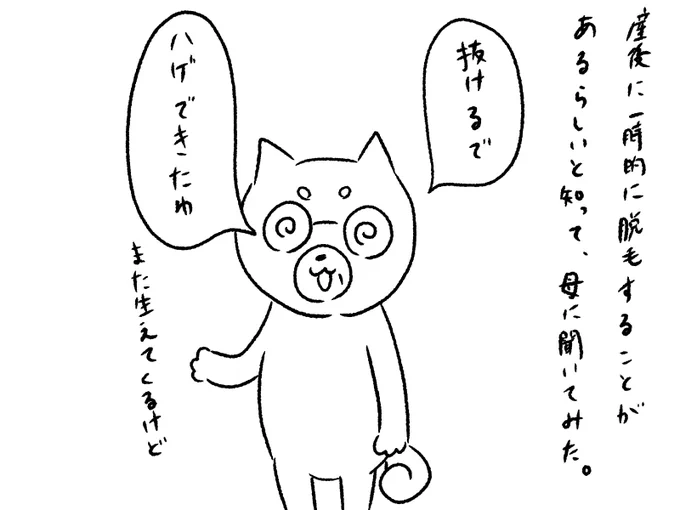 産後に一時的に脱毛することが
あるらしいと知って、母に聞いてみた。
抜けるで
ハゲできたわ
また生えてくるけど